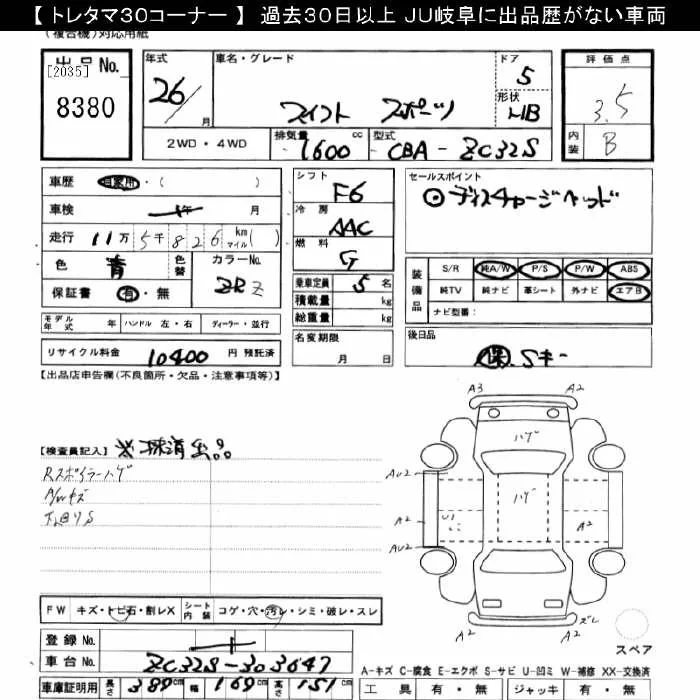 【 トレタマ30コーナー 】 過去30日以上 JU岐阜に出品歴がない車両
(複合機)対応用紙
出品No.
[2035]
8380
年式
26/
月
車名・グレード
スイフト スポーツ
ドア
5
形状
HB
評価点
3.5
内装
B
2WD・4WD
排気量
1600
cc
型式
CBA-ZC32S
車歴
自家用・( )
車検
年 月
走行
11万5千826
km
マイル( )
色
青
色替
カラーNo.
ZRZ
保証書
有・無
シフト
F6
冷房
AAC
燃料
G
乗車定員 5 名
積載量 kg
総重量 kg
セールスポイント
◎ディスチャージヘッド
装備品
S/R 純A/W P/S P/W ABS
純TV 純ナビ 革シート 外ナビ エアB
ナビ型番:
モデル年式 年 ハンドル 左・右 ディーラー・並行
名変期限
月 日
後日品
保.Sキー
リサイクル料金 10400 円 預託済
【出品店申告欄(不良箇所・欠品・注意事項等)】
【検査員記入】
Rスポイラーハゲ
A/Wキズ
下回りS
A3 A2
ハゲ
AU2
ハゲ
A2 U1 A2
AU2
A2 A2 ズレ
スペア
FW キズ・トビ石・割レX シート内装 コゲ・穴・汚レ・シミ・破レ・スレ
登録No.
車台No. ZC32S-303647
車庫証明用 長さ 389cm 幅 169cm 高さ 151cm
A-キズ C-腐食 E-エクボ S-サビ U-凹ミ W-補修 XX-交換済
工具 有・無 ジャッキ 有・無